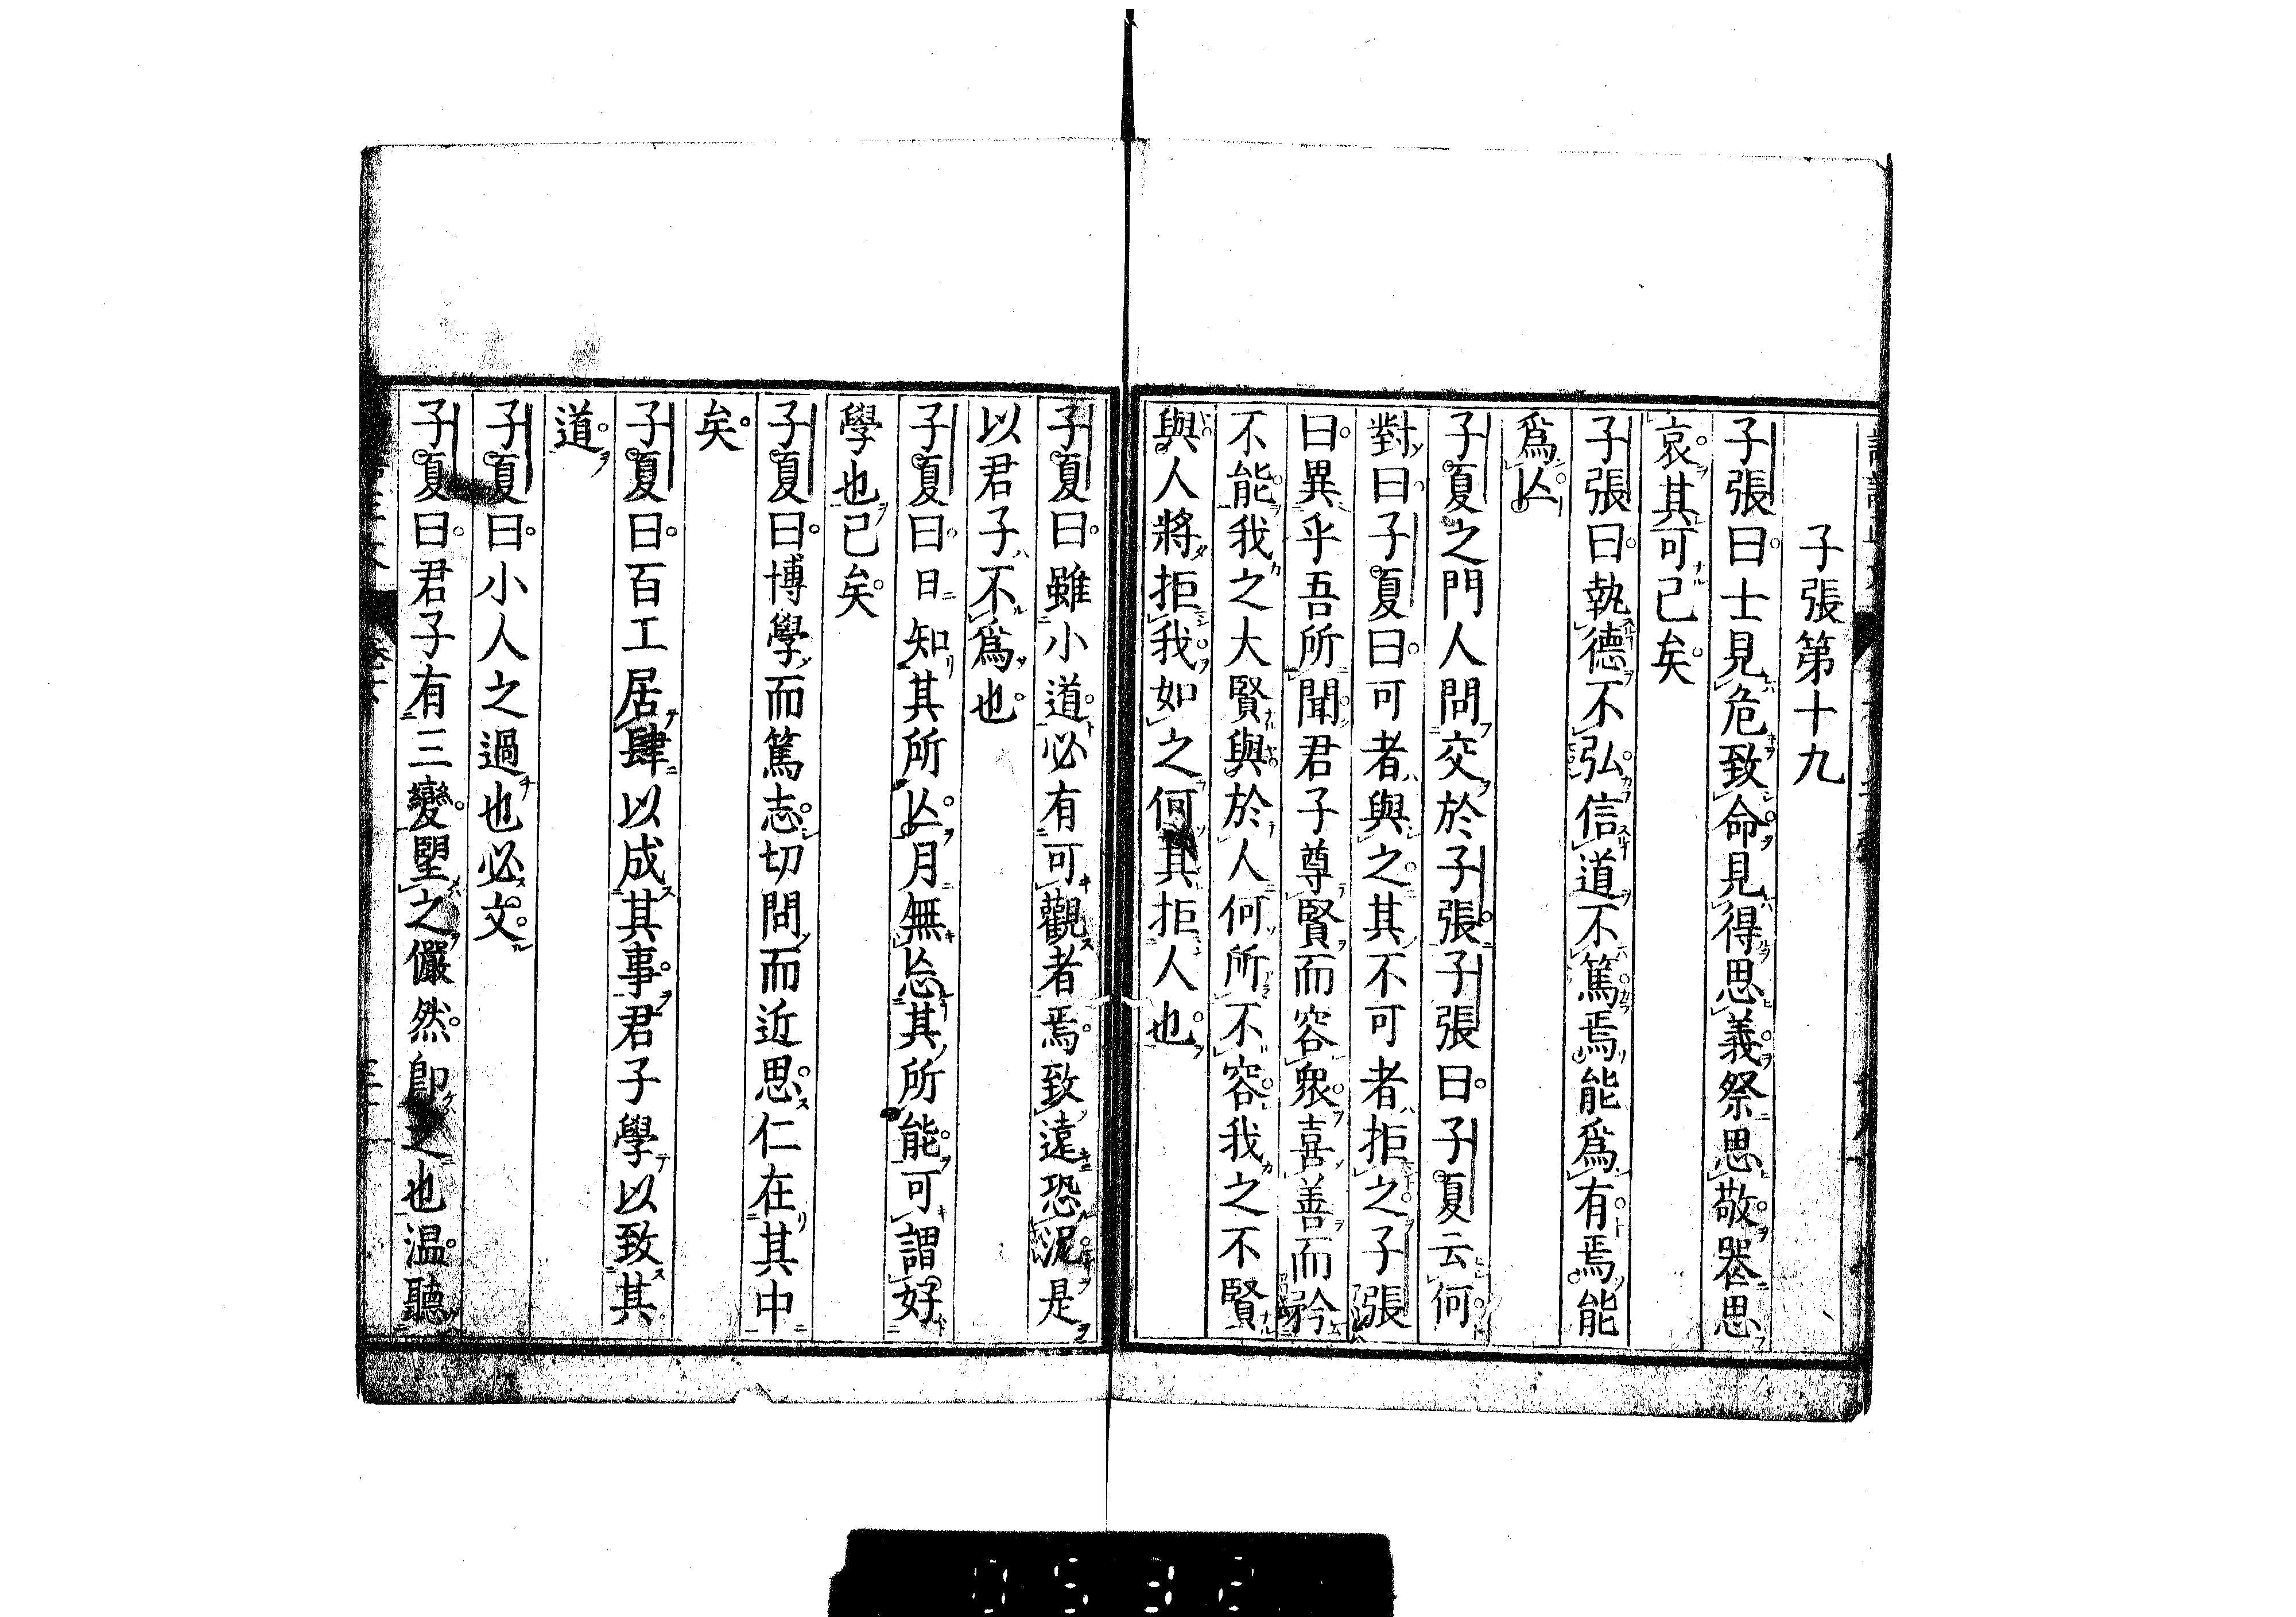 子張第十九
子張曰士見危致命見得思義祭思敬喪思
哀其可已矣
子張曰執德不弘信道不篤焉能爲有焉能
爲亾
子夏之門人問交於子張子張曰子夏云何
對曰子夏曰可者與之其不可者拒之子張
曰異乎吾所聞君子尊賢而容衆喜善而矜
不能我之大賢與於人何所不容我之不賢
與人將拒我如之何其拒人也
子夏曰雖小道必有可觀者焉致遠恐泥是
以君子不爲也
子夏曰日知其所亾月無忘其所能可謂好
學也已矣
子夏曰博學而篤志切問而近思仁在其中
矣
子夏曰百工居肆以成其事君子學以致其
道
子夏曰小人之過也必文
子夏曰君子有三變望之儼然卽之也温聽